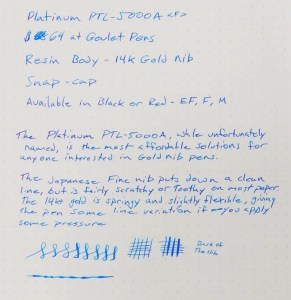 Platinum PTL-5000A <F>
$64 at Goulet Pens
Resin Body - 14k Gold nib
Snap-cap
Available in Black or Red - EF, F, M
The Platinum PTL-5000A, while unfortunately
named, is the most affordable solutions for
anyone interested in Gold nib pens.
The Japanese Fine nib puts down a clean
line, but is fairly scratchy or Toothy on most paper
The 14kt gold is springy and slightly flexible, giving
the pen some line variation if you apply
some pressure
Back of
The nib